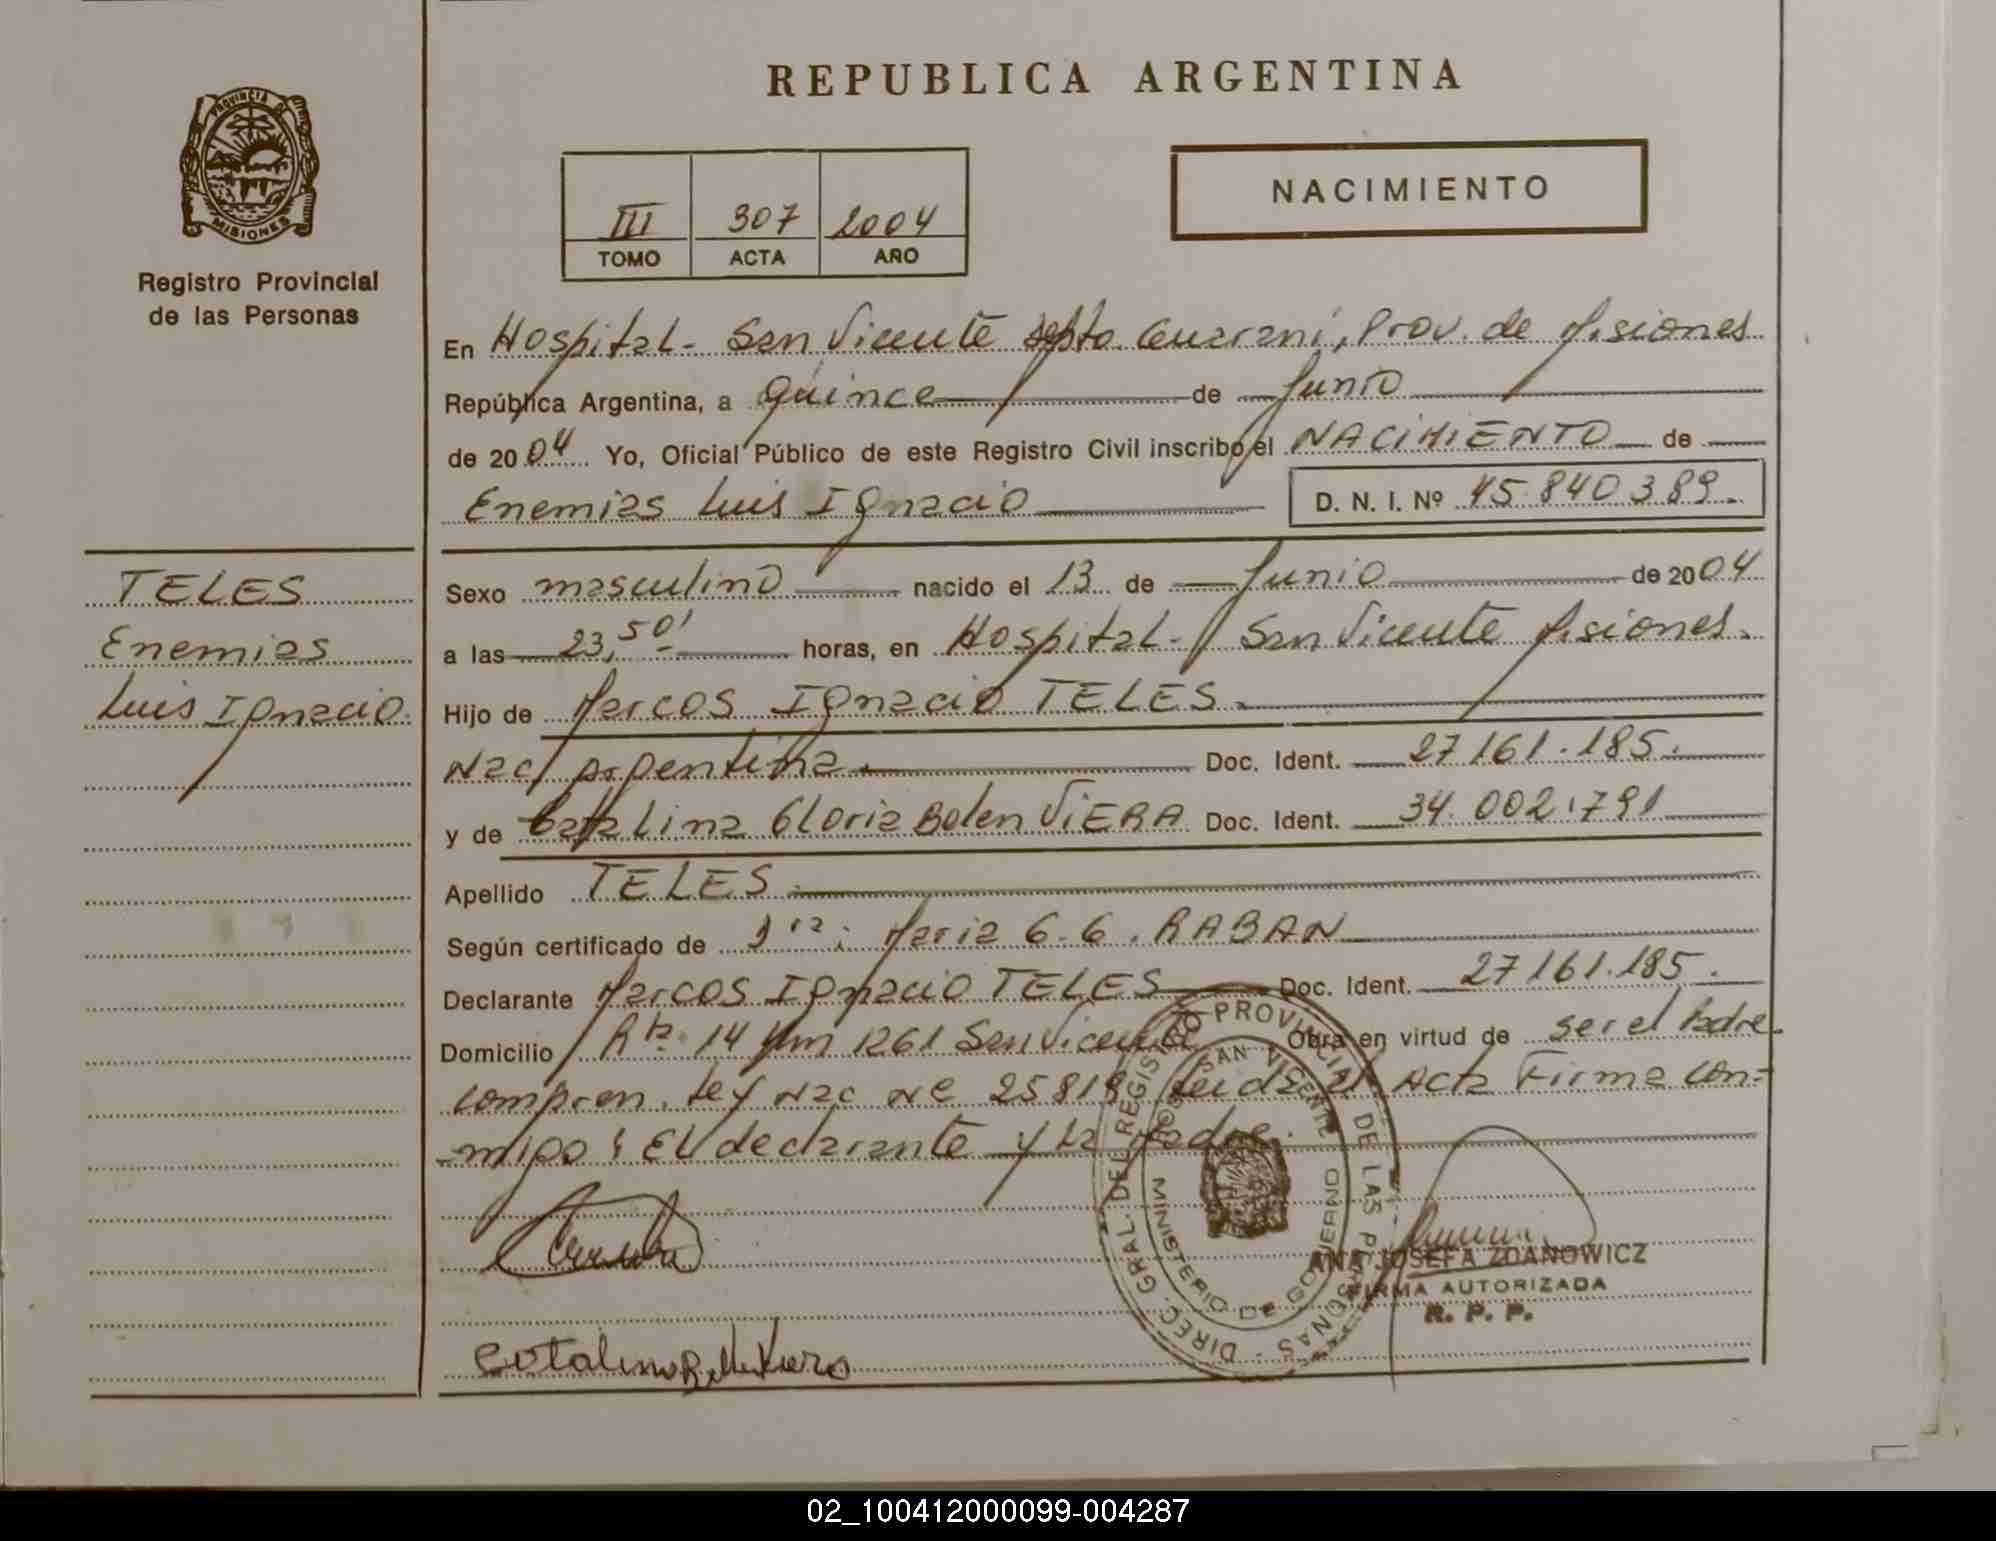 REPUBLICA ARGENTINA
PROVINCIA DE
MISIONES
Registro Provincial
de las Personas
III 307 2004
TOMO ACTA AÑO
NACIMIENTO
En Hospital - San Vicente Dpto. Guarani, Prov. de Misiones
República Argentina, a quince de Junio
de 2004 Yo, Oficial Público de este Registro Civil inscribo el NACIMIENTO de
Enemias Luis Ignacio D. N. I. Nº 45.840.389.
TELES
Enemias
Luis Ignacio.
Sexo masculino nacido el 13 de Junio de 2004
a las 23,50' horas, en Hospital - San Vicente Misiones.
Hijo de Marcos Ignacio TELES.
Nac/ Argentina. Doc. Ident. 27161.185.
y de Catalina Gloria Belen ViERA Doc. Ident. 34.002.791
Apellido TELES.
Según certificado de Maria G. G. RABAN
Declarante Marcos Ignacio TELES Doc. Ident. 27161.185.
Domicilio Rta. 14 Km 1261 San Vicente Obra en virtud de ser el Padre
compren. Ley Nac Nº 25819 Leida el Acta Firma con-
-migo: El declarante y la Madre.
DIREC. GRAL. DEL REGISTRO PROVINCIAL DE LAS PERSONAS
SAN VICENTE
MINISTERIO DE GOBIERNO
ANA JOSEFA ZDANOWICZ
FIRMA AUTORIZADA
R. P. P.
02_100412000099-004287